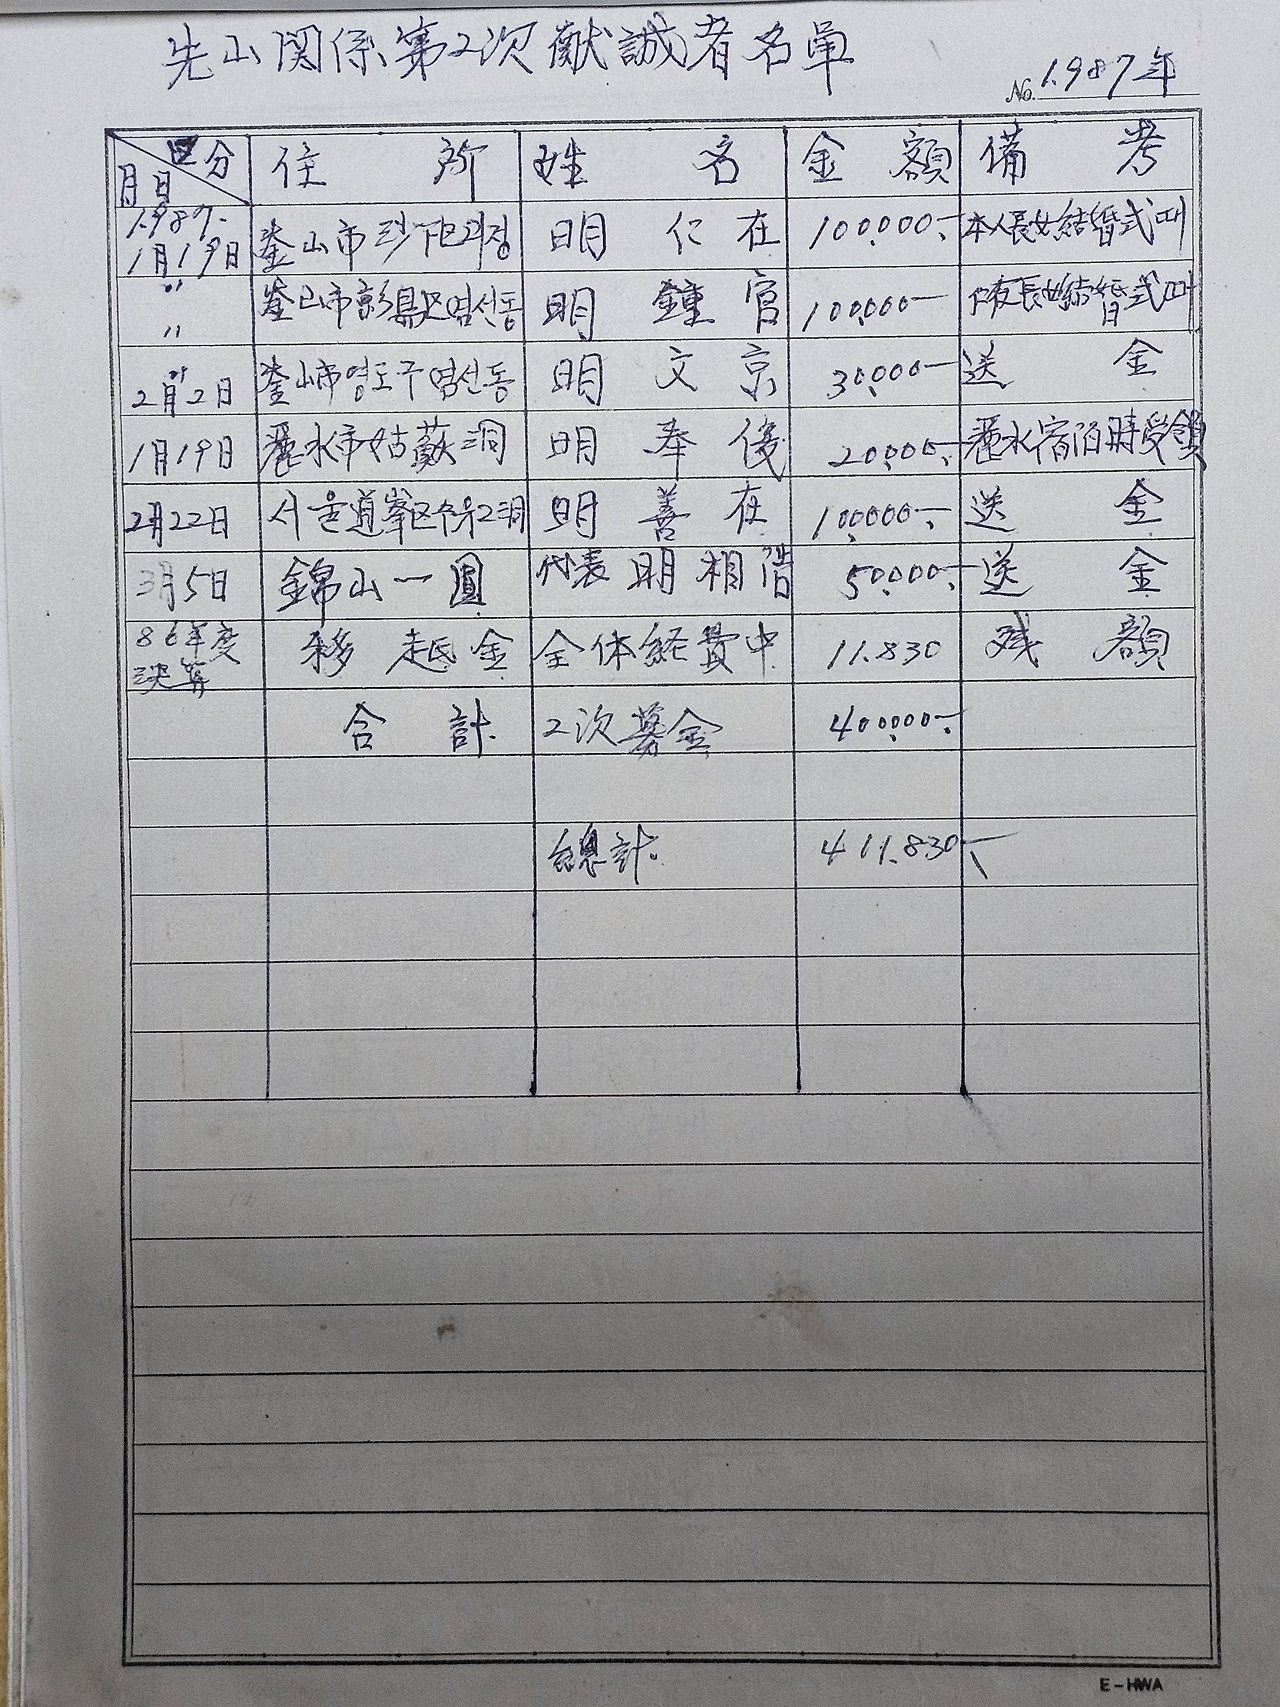 先山関係第2次献誠者名單
No. 1.987年
区分 月日 住所 姓名 金額 備考
1.987. 1月19日 釜山市 明仁在 100.000.- 本人長女結婚式때
〃 〃 釜山市影島区영선동 明鍾官 100.000- 長女結婚式때
〃 2月2日 釜山市영도구영선동 明文京 30.000- 送金
1月19日 麗水市姑蘇洞 明奉俊 20.000.- 麗水宿泊時受領
2月22日 서울道峯区수유2洞 明善在 100.000.- 送金
3月5日 錦山一圓 代表明相 50.000.- 送金
86年度決算 移越金 全体経費中 11.830 残額
合計 2次募金 400.000.-
總計. 411.830-
E-HWA